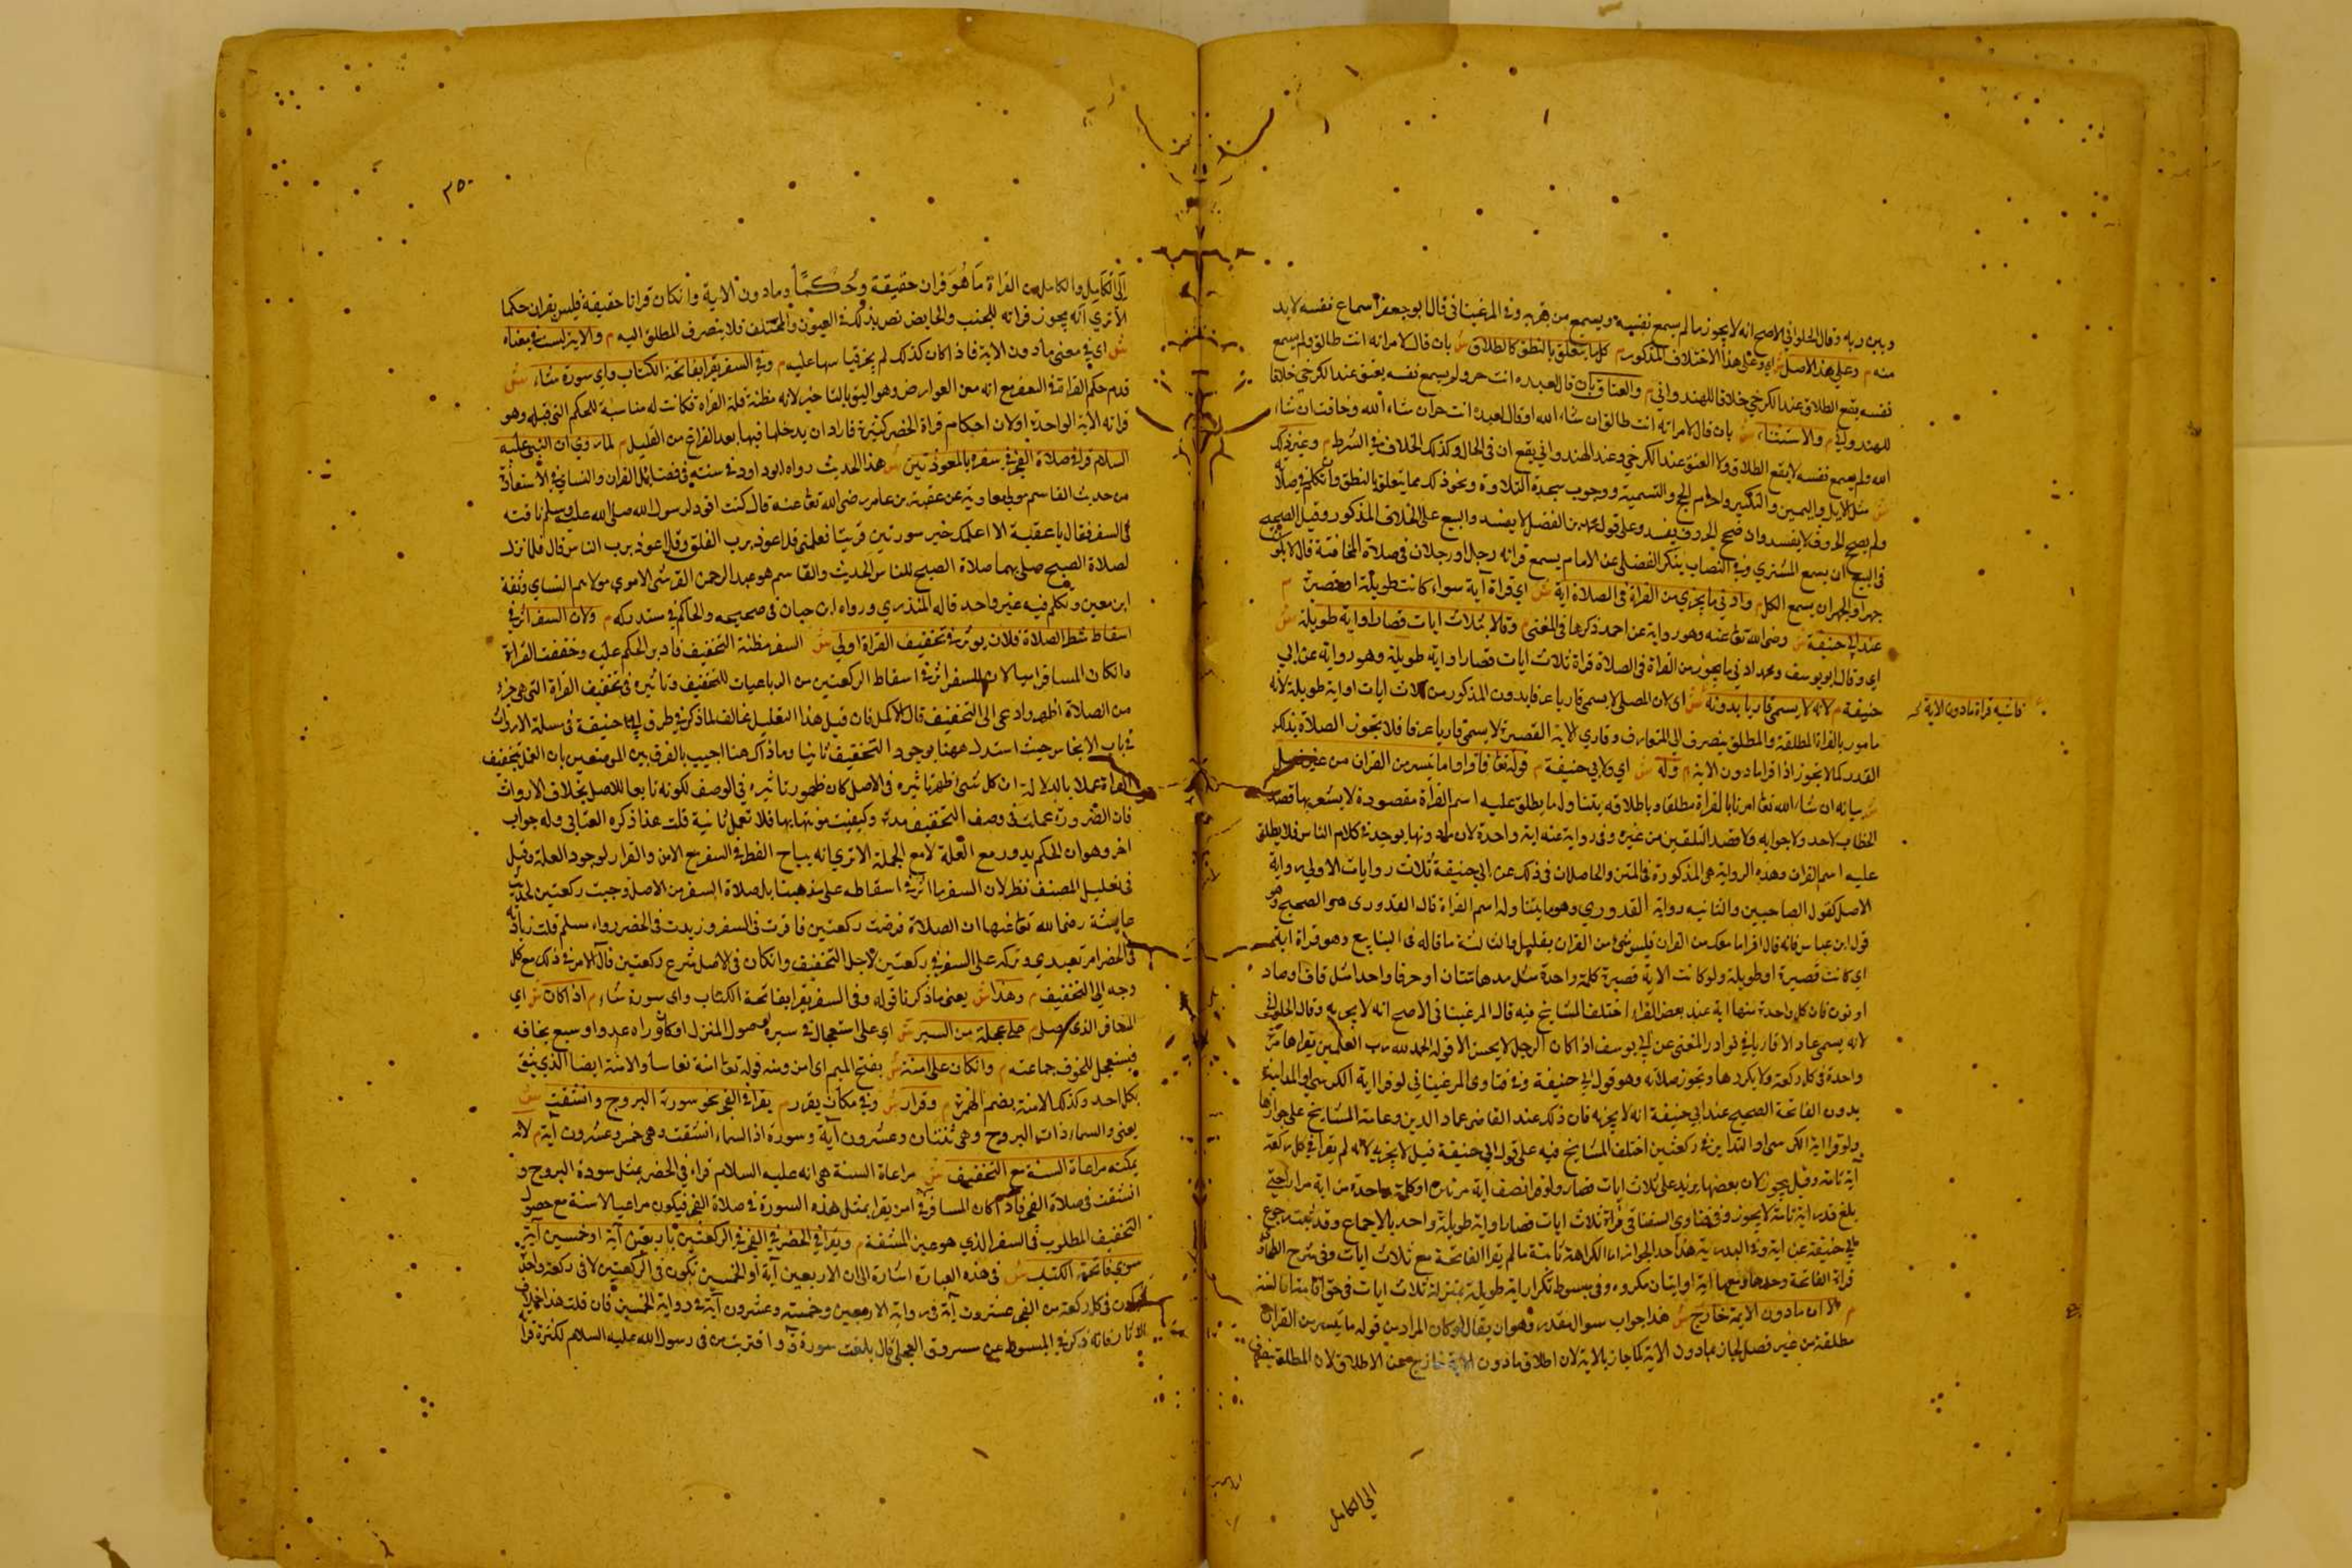 وبين ربه وقال الحلواني الاصح انه لا يجوز ما لم يسمع نفسه ويسمع من بقربه وفي المرغيناني قال ابو جعفر اسماع نفسه لا بد
منه م وعلى هذا الاصل ش اي وعلى هذا الاختلاف المذكور م كل ما يتعلق بالنطق كالطلاق ش بان قال لامراته انت طالق ولم يسمع
نفسه يقع الطلاق عند الكرخي خلافا للهندواني م والعتاق بان قال لعبده انت حر ولم يسمع نفسه يعتق عند الكرخي خلافا
للهندواني م والاستثناء ش بان قال لامراته انت طالق ان شاء الله او قال لعبده انت حر ان شاء الله وخافت ان شاء
الله ولم يسمع نفسه لا يقع الطلاق ولا العتق عند الكرخي وعند الهندواني يقع ان في الحال وكذلك الخلاف في الشرط م وغير ذلك
ش مثل الايلاء واليمين والتكبير واحرام الحج والتسمية ووجوب سجدة التلاوة ونحو ذلك مما يتعلق بالنطق وان تكلم في صلاته
ولم يصح الحروف لا يفسد وان صح الحروف يفسد وعلى قول محمد بن الفضل لا يفسد والبيع على الخلاف المذكور وقيل الصحيح
في البيع ان يسمع المشتري وفي النصاب عن الامام يسمع قراته رجل او رجلان في صلاة المخافتة قال لا يكون
جهرا والجهر ان يسمع الكل م وادنى ما يجزي من القراة في الصلاة اية ش اي قراة آية سواء كانت طويلة او قصيرة م
عند ابي حنيفة ش رضي الله تعا عنه وهو رواية عن احمد ذكرها في المغني م وقالا ثلاث ايات قصار او اية طويلة ش
اي وقال ابو يوسف ومحمد ادنى ما يجوز من القراة في الصلاة قراة ثلاث ايات قصار او اية طويلة وهو رواية عن ابي
حنيفة م لانه لا يسمى قاريا بدونه ش اي لان المصلي لا يسمى قاريا عرفا بدون المذكور من ثلاث ايات او اية طويلة لانه
قراة مادون الاية
مامور بالقراة المطلقة والمطلق ينصرف الى المتعارف وقاري الاية القصيرة لا يسمى قاريا عرفا فلا يجوز الصلاة بذلك
القدر كما لا يجوز اذا قرا ما دون الاية م وله ش اي ولابي حنيفة م قوله تعا فاقراوا ما تيسر من القران من غير فصل
ش بيانه ان شاء الله تعا امرنا بالقراة مطلقا وباطلاقه يتناول ما يطلق عليه اسم القراة مقصودة لا يشعر بها قصد
الخطاب لاحد ولا جوابه ولا قصد التلقين من غيره وفي رواية عنه اية واحدة لان ما دونها يوجد في كلام الناس فلا يطلق
عليه اسم القران وهذه الرواية هي المذكورة في المتن والحاصل ان في ذلك عن ابي حنيفة ثلاث روايات الاولى رواية
الاصل كقول الصاحبين والثانية رواية القدوري وهو ما يتناوله اسم القراة قال القدوري هو الصحيح وهو
قول ابن عباس فانه قال اقرا ما معك من القران فليس شيء من القران بقليل والثالثة ما قاله في الينابيع وهو قراة اية
اي كانت قصيرة او طويلة ولو كانت الاية قصيرة كلمة واحدة مثل مدهامتان او حرفا واحدا مثل قاف او صاد
او نون فان كل واحدة منها اية عند بعض القراء اختلف المشايخ فيه قال المرغيناني الاصح انه لا يجزيه وقال الحلواني
لانه يسمى عادا لا قاريا في نوادر المعلى عن ابي يوسف اذا كان الرجل لا يحسن الا قوله الحمد لله رب العالمين يقراها مرة
واحدة في كل ركعة ولا يكررها وتجوز صلاته وهو قول ابي حنيفة وفي فتاوى المرغيناني لو قرا اية الكرسي او المداينة
بدون الفاتحة الصحيح عند ابي حنيفة انه لا يجزيه فان ذلك عند القاضي عماد الدين وعامة المشايخ على جوازها
ولو قرا اية الكرسي او التداين في ركعتين اختلف المشايخ فيه على قول ابي حنيفة قيل لا يجزيه لانه لم يقرا في كل ركعة
آية تامة وقيل يجوز لان بعضها يزيد على ثلاث ايات قصار ولو قرا نصف اية مرتين او كلمة واحدة من اية مرارا حتى
يبلغ قدر اية تامة لا يجوز وفي فتاوى السغناقي قراة ثلاث ايات قصار او اية طويلة واحد بالاجماع وقد ثبت رجوع
ابي حنيفة عن اية هذا حد الجواز اما الكراهة ثابتة ما لم يقرا الفاتحة مع ثلاث ايات وفي شرح الطحاوي
قراة الفاتحة وحدها ومعها اية او ايتان مكروه وفي مبسوط تكرار اية طويلة بمنزلة ثلاث ايات في حق اقامة السنة
م الا ان ما دون الاية خارج ش هذا جواب سوال مقدر وهو ان يقال لو كان المراد من قوله ما تيسر من القران
مطلقة من غير فصل لجاز بما دون الاية كما جاز بالاية لان اطلاق ما دون الاية خارج عن الاطلاق لان المطلق ينصرف
الى الكامل
٣٥٠
الى الكامل والكامل من القراة ما هو قران حقيقة وحكما وما دون الاية وان كان قرانا حقيقة فليس بقران حكما
الا ترى انه يجوز قراته للجنب والحايض نص بذلك في العيون والمختلف فلا ينصرف المطلق اليه م والاية ليست في معناه
ش اي في معنى ما دون الاية فاذا كان كذلك لم يجز قياسها عليه م وفي السفر يقرا بفاتحة الكتاب واي سورة شاء ش
قدم حكم القراة في السفر مع انه من العوارض وهو اليق بالتاخير لانه مظنة قلة القراة فكانت له مناسبة للحكم الذي قبله وهو
قراته الاية الواحدة او لان احكام قراة الحضر كثيرة فاراد ان يدخلها فيها بعد الفراغ من القليل م لما روي ان النبي عليه
السلام قرا في صلاة الفجر في سفره بالمعوذتين ش هذا الحديث رواه ابو داود في سننه في فضائل القران والنساي في الاستعاذة
من حديث القاسم مولى معاوية عن عقبة بن عامر رضي الله تعا عنه قال كنت اقود لرسول الله صلى الله عليه وسلم ناقته
في السفر فقال يا عقبة الا اعلمك خير سورتين قريتا فعلمني قل اعوذ برب الفلق وقل اعوذ برب الناس قال فلما نزل
لصلاة الصبح صلى بهما صلاة الصبح للناس الحديث والقاسم هو عبد الرحمن القرشي الاموي مولاهم الشامي وثقه
ابن معين وتكلم فيه غير واحد قاله المنذري ورواه ابن حبان في صحيحه والحاكم في مستدركه م ولان السفر اثر في
اسقاط شطر الصلاة فلان يوثر في تخفيف القراة اولى ش السفر مظنة التخفيف فادير الحكم عليه وخففت القراة
وان كان المسافر اميا لان للسفر اثر في اسقاط الركعتين من الرباعيات للتخفيف وتاثيره في تخفيف القراة التي هي جزء
من الصلاة اظهر وادعى الى التخفيف قال الاكمل فان قيل هذا التعليل مخالف لما ذكر في طرف ابي حنيفة في مسلة الارواث
في باب الانجاس حيث استدل ههنا بوجود التخفيف ثانيا وما ذاك هنا اجيب بالفرق بين الموضعين بان العمل بتخفيف
القراة عملا بالدلالة ان كل شيء اظهر تاثيره في الاصل كان ظهور تاثيره في الوصف لكونه تابعا للاصل بخلاف الارواث
فان الضرورة عملت في وصف التخفيف مرة وكفيت مونتها بها فلا تعمل ثانية قلت هذا ذكره العتابي وله جواب
اخر وهو ان الحكم يدور مع العلة لا مع الحكمة الا ترى انه يباح الفطر في السفر مع الامن والقرار لوجود العلة وقيل
في تعليل المصنف نظر لان السفر ما اثر في اسقاطه على مذهبنا بل صلاة السفر من الاصل وجبت ركعتين لحديث
عايشة رضي الله تعا عنها ان الصلاة فرضت ركعتين فاقرت في السفر وزيدت في الحضر رواه مسلم قلت زيادته
في الحضر امر تعبدي وتركه على السفر في ركعتين لاجل التخفيف وان كان في الاصل شرع ركعتين قال الامر في ذلك مع كل
وجه الى التخفيف م وهذا ش يعني ما ذكرنا قوله وفي السفر يقرا بفاتحة الكتاب واي سورة شاء م اذا كان ش اي
المسافر الذي يصلي م على عجلة من السير ش اي على استعجال في سيره لوصول المنزل او كان وراه عدو او سبع يخافه
فيستعجل للخوف جماعته م وان كان على امنة ش بفتح الميم اي امن ومنه قوله تعا امنة نعاسا والامنة ايضا الذي يثق
بكل احد وكذلك الامنة بضم الهمزة م وقرار ش وفي مكان يقرر م يقرا في الفجر نحو سورة البروج وانشقت ش
يعني والسماء ذات البروج وهي ثنتان وعشرون آية وسورة اذا السماء انشقت وهي خمس وعشرون آية م لانه
يمكنه مراعاة السنة مع التخفيف ش مراعاة السنة هي انه عليه السلام قراء في الحضر بمثل سورة البروج و
انشقت في صلاة الفجر فاذا كان المسافر في امن يقرا بمثل هذه السورة في صلاة الفجر فيكون مراعيا للسنة مع حصول
التخفيف المطلوب في السفر الذي هو عين المشقة م ويقرا في الحضر في الفجر في الركعتين باربعين آية او خمسين آية
سوى فاتحة الكتاب ش في هذه العبارة اشارة الى ان الاربعين آية او الخمسين تكون في الركعتين لا في ركعة واحدة
فيكون في كل ركعة من الفجر عشرون آية في رواية الاربعين وخمسة وعشرون آية في رواية الخمسين فان قلت هذا خلاف
الاثار فانه ذكر في المبسوط عن مسروق العجلي قال تلقنت سورة ق واقتربت من في رسول الله عليه السلام لكثرة قرا